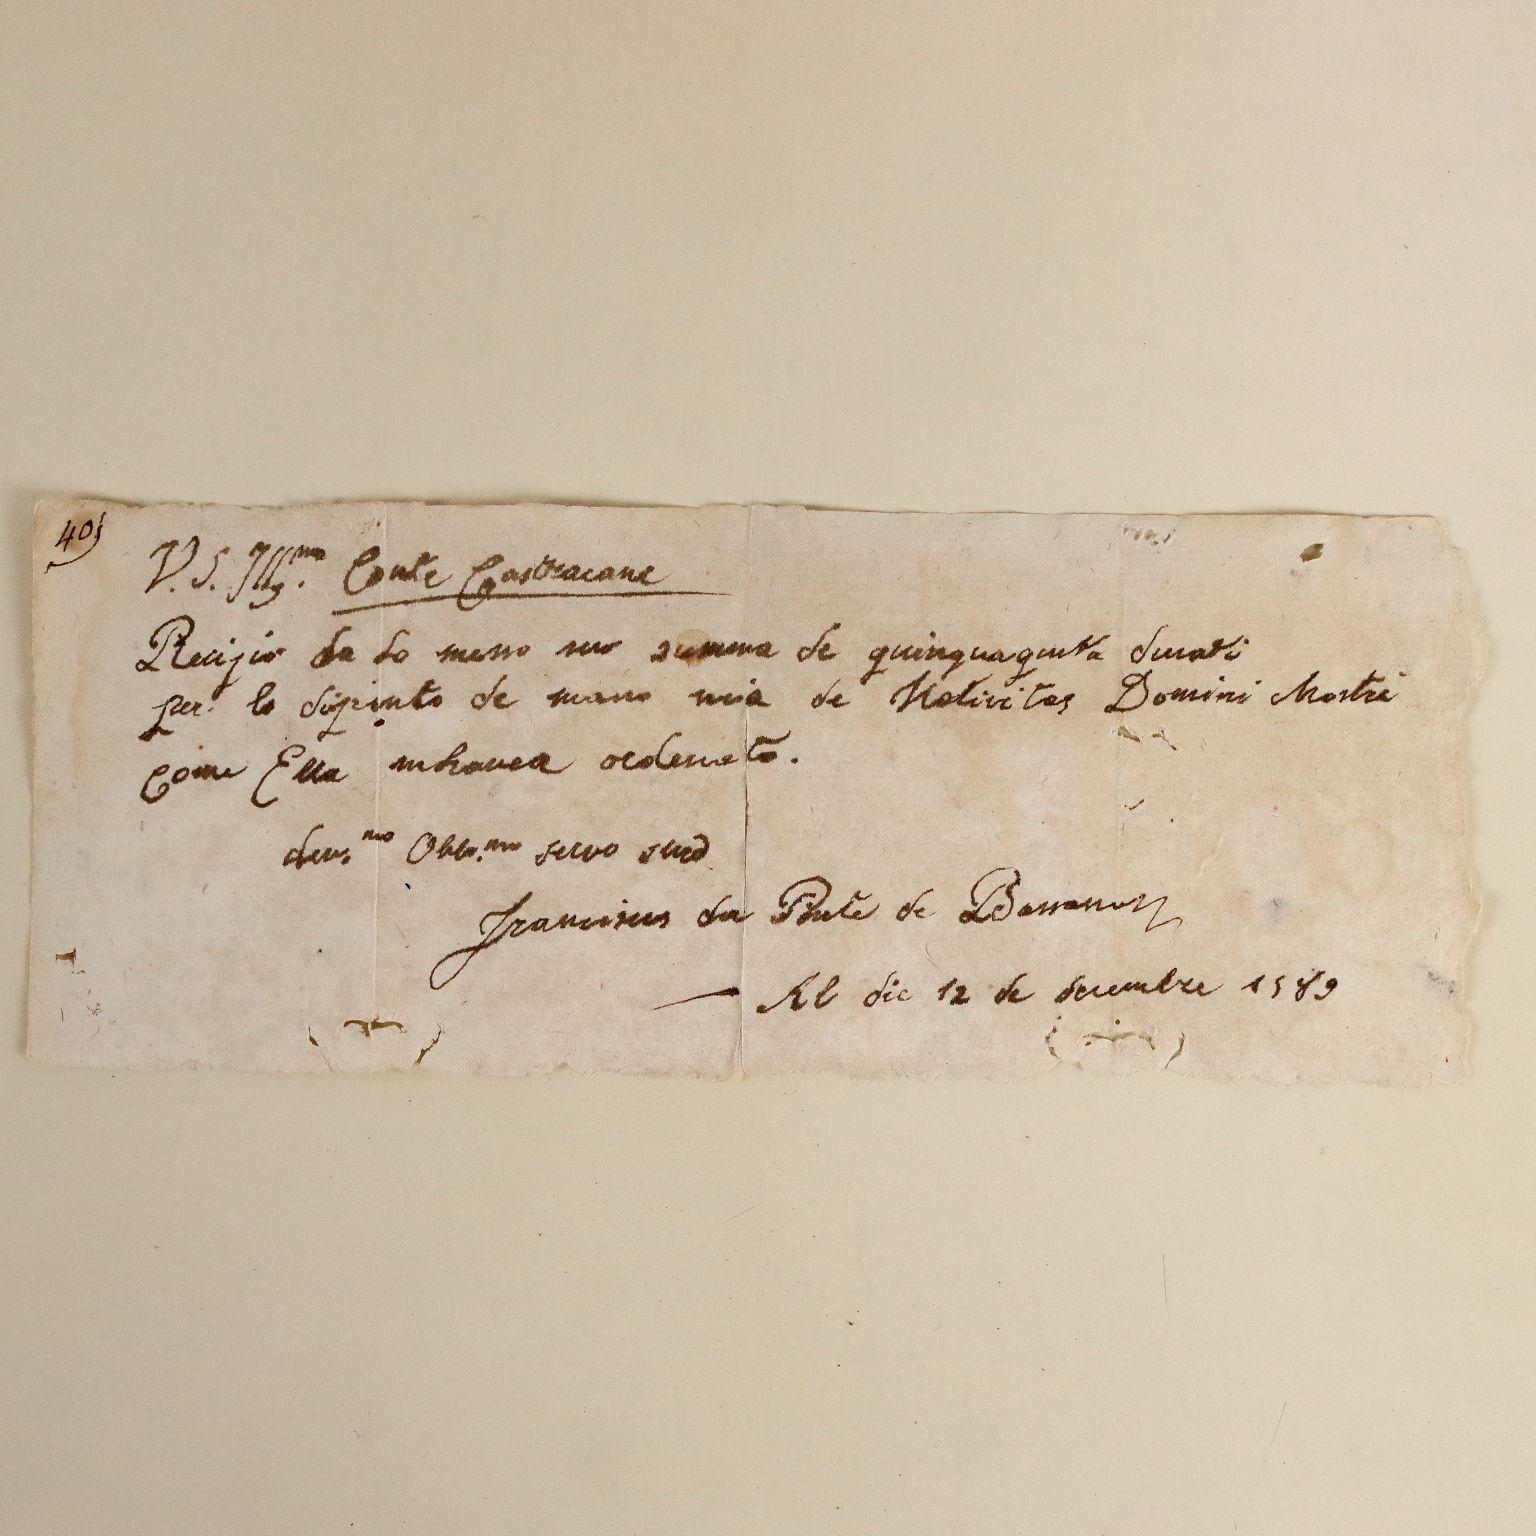 40)
V. S. Illma. Conte Castracane
Recipio da lo messo suo summa de quinquaginta ducati
per lo dipinto de mano mia de Nativitas Domini Nostri
come Ella mhavea ordenato.
dev.mo Obb.mo servo suo
Franciscus da Ponte de Bassano
Al die 12 de decembre 1589